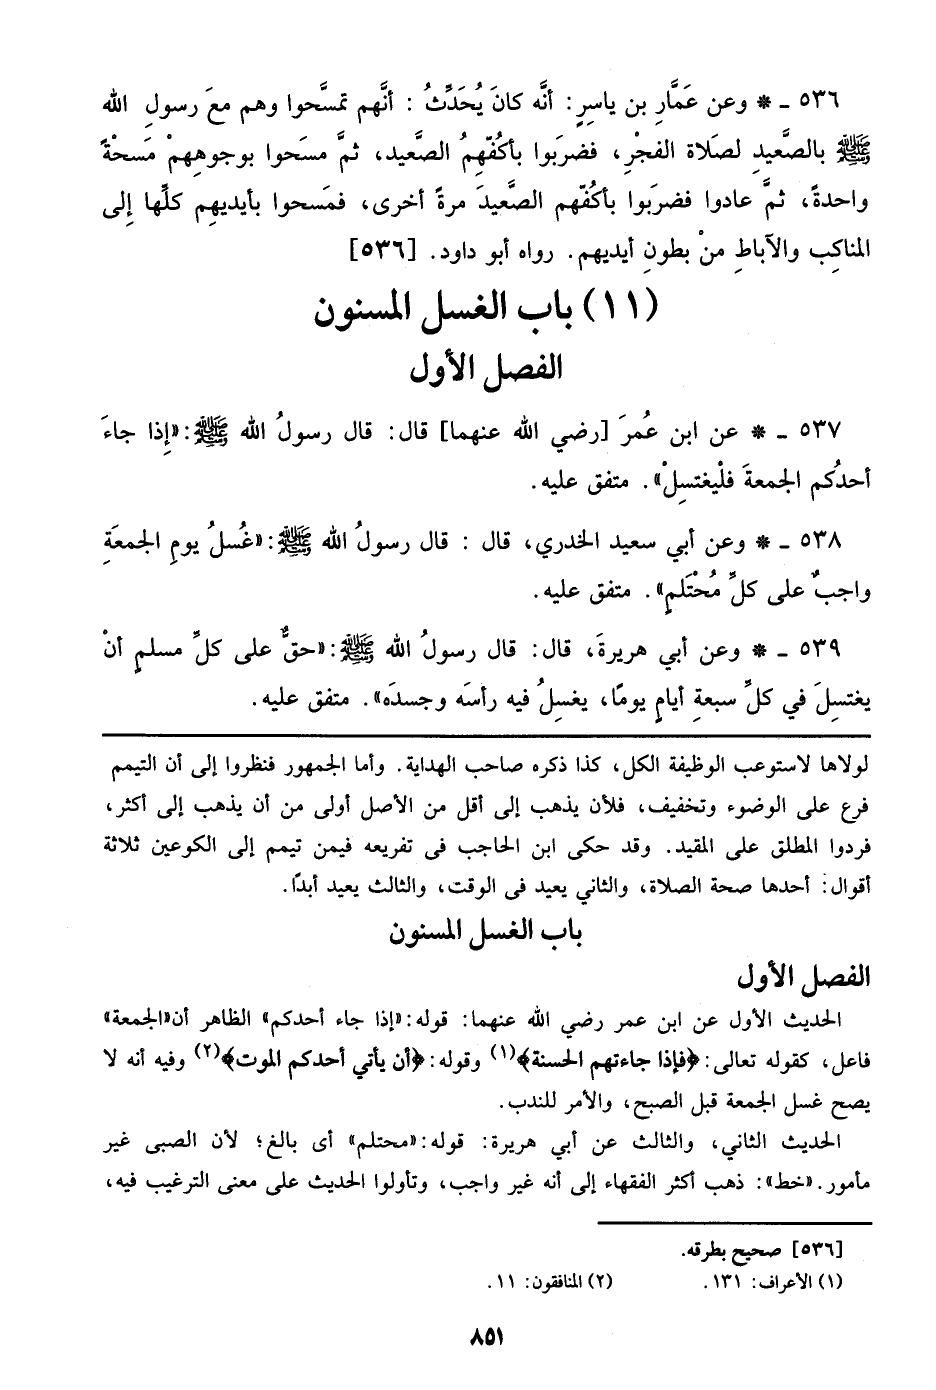 ٥٣٦ ـ * وعن عَمَّارِ بن ياسِرٍ: أنَّه كانَ يُحَدِّثُ : أنَّهم تمسَّحوا وهم معَ رسولِ اللهِ
ﷺ بالصَّعيدِ لصَلاة الفجْرِ، فضرَبوا بأكُفّهِمُ الصَّعيد، ثمَّ مسَحوا بوجوهِهمْ مَسحْةً
واحدةً، ثمَّ عادوا فضرَبوا بأكُفّهم الصَّعيدَ مرةً أخرى، فمَسحوا بأيديهِم كلِّها إِلى
المناكِب والآباطِ منْ بطونِ أيديهم. رواه أبو داود. [٥٣٦]
(١١) باب الغسل المسنون
الفصل الأول
٥٣٧ ـ * عن ابن عُمرَ [رضي الله عنهما] قال: قال رسولُ الله ﷺ:«إِذا جاءَ
أحدُكم الجمعةَ فلْيغتسِلْ». متفق عليه.
٥٣٨ ـ * وعن أبي سعيد الخدري، قال : قال رسولُ الله ﷺ:«غُسلُ يومِ الجمعَةِ
واجبٌ على كلِّ مُحْتَلمٍ». متفق عليه.
٥٣٩ ـ * وعن أبي هريرةَ، قال: قال رسولُ الله ﷺ:«حقٌّ على كلِّ مسلمٍ أنْ
يغتسِلَ في كلِّ سبعةِ أيامٍ يومًا، يغسِلُ فيه رأسَه وجسدَه». متفق عليه.
لولاها لاستوعب الوظيفة الكل، كذا ذكره صاحب الهداية. وأما الجمهور فنظروا إلى أن التيمم
فرع على الوضوء وتخفيف، فلأن يذهب إلى أقل من الأصل أولى من أن يذهب إلى أكثر،
فردوا المطلق على المقيد. وقد حكى ابن الحاجب فى تفريعه فيمن تيمم إلى الكوعين ثلاثة
أقوال: أحدها صحة الصلاة، والثاني يعيد فى الوقت، والثالث يعيد أبدًا.
باب الغسل المسنون
الفصل الأول
الحديث الأول عن ابن عمر رضي الله عنهما: قوله:«إذا جاء أحدكم» الظاهر أن«الجمعة»
فاعل، كقوله تعالى:﴿فإذا جاءتهم الحسنة﴾(١) وقوله:﴿أن يأتي أحدكم الموت﴾(٢) وفيه أنه لا
يصح غسل الجمعة قبل الصبح، والأمر للندب.
الحديث الثاني، والثالث عن أبي هريرة: قوله:«محتلم» أى بالغ؛ لأن الصبى غير
مأمور.«خط»: ذهب أكثر الفقهاء إلى أنه غير واجب، وتأولوا الحديث على معنى الترغيب فيه،
[٥٣٦] صحيح بطرقه.
(١) الأعراف: ١٣١. (٢) المنافقون: ١١.
٨٥١